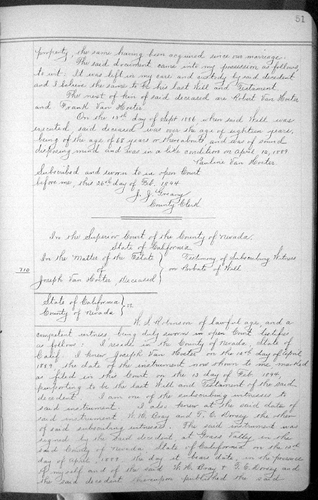 51
property, the same having been acquired since our marriage.
The said document came into my possession as follows
to wit: It was left in my care and custody by said decedent
and I believe the same to be his last Will and Testament
The next of kin of said deceased are Robert Van Horter
and Frank Van Horter
On the day of Sept 1886 when said Will was
executed, said deceased was over the age of eighteen years,
being of the age of 68 years or thereabouts and was of sound
disposing mind and was in a like condition on April 10, 1889.
Pauline Van Horter
Subscribed and sworn to in open Court
before me this 26th day of Feb. 1894
J. J. Greany
County Clerk
In the Superior Court of the County of Nevada
State of California
In the Matter of the Estate
of
Joseph Van Horter Deceased
Testimony of Subscribing Witness
on Probate of Will
State of California
County of Nevada
W. S. Robinson of lawful age, and a
competent witness, being duly sworn in open Court testifies
as follows: I reside in the County of Nevada, State of
Calif. I knew Joseph Van Horter on the 10th day of April
1889, the date of the instrument now shown to me marked
as filed in this Court on the 13 day of Feb. 1894,
purporting to be the last Will and Testament of the said
decedent. I am one of the subscribing witnesses to
said instrument. I also knew at the said date of
said instrument and the other
of said subscribing witnesses. The said instrument was
signed by the said decedent at Grass Valley, in the
said County of Nevada, State of California on the
day of April 1889 the day it bears date, in the presence
of myself and of the said and
the said decedent thereupon published the said